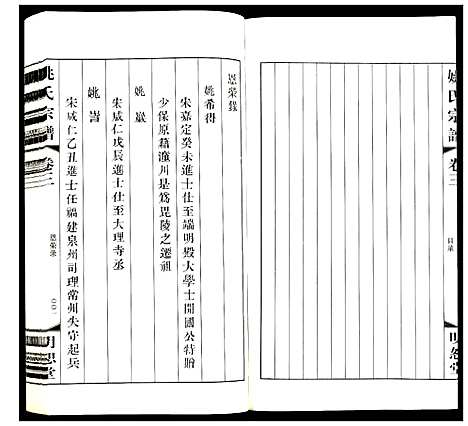 姚氏宗譜
卷三
目錄
明恕堂
恩榮錄
姚希得
宋嘉定癸未進士仕至端明殿大學士開國公特贈
少保原籍潼川是為毘陵之遷祖
姚嶽
宋咸仁戊辰進士仕至大理寺丞
姚訔
宋咸仁乙丑進士任福建泉州司理常州失守起兵
姚氏宗譜
卷三
恩榮錄
明恕堂